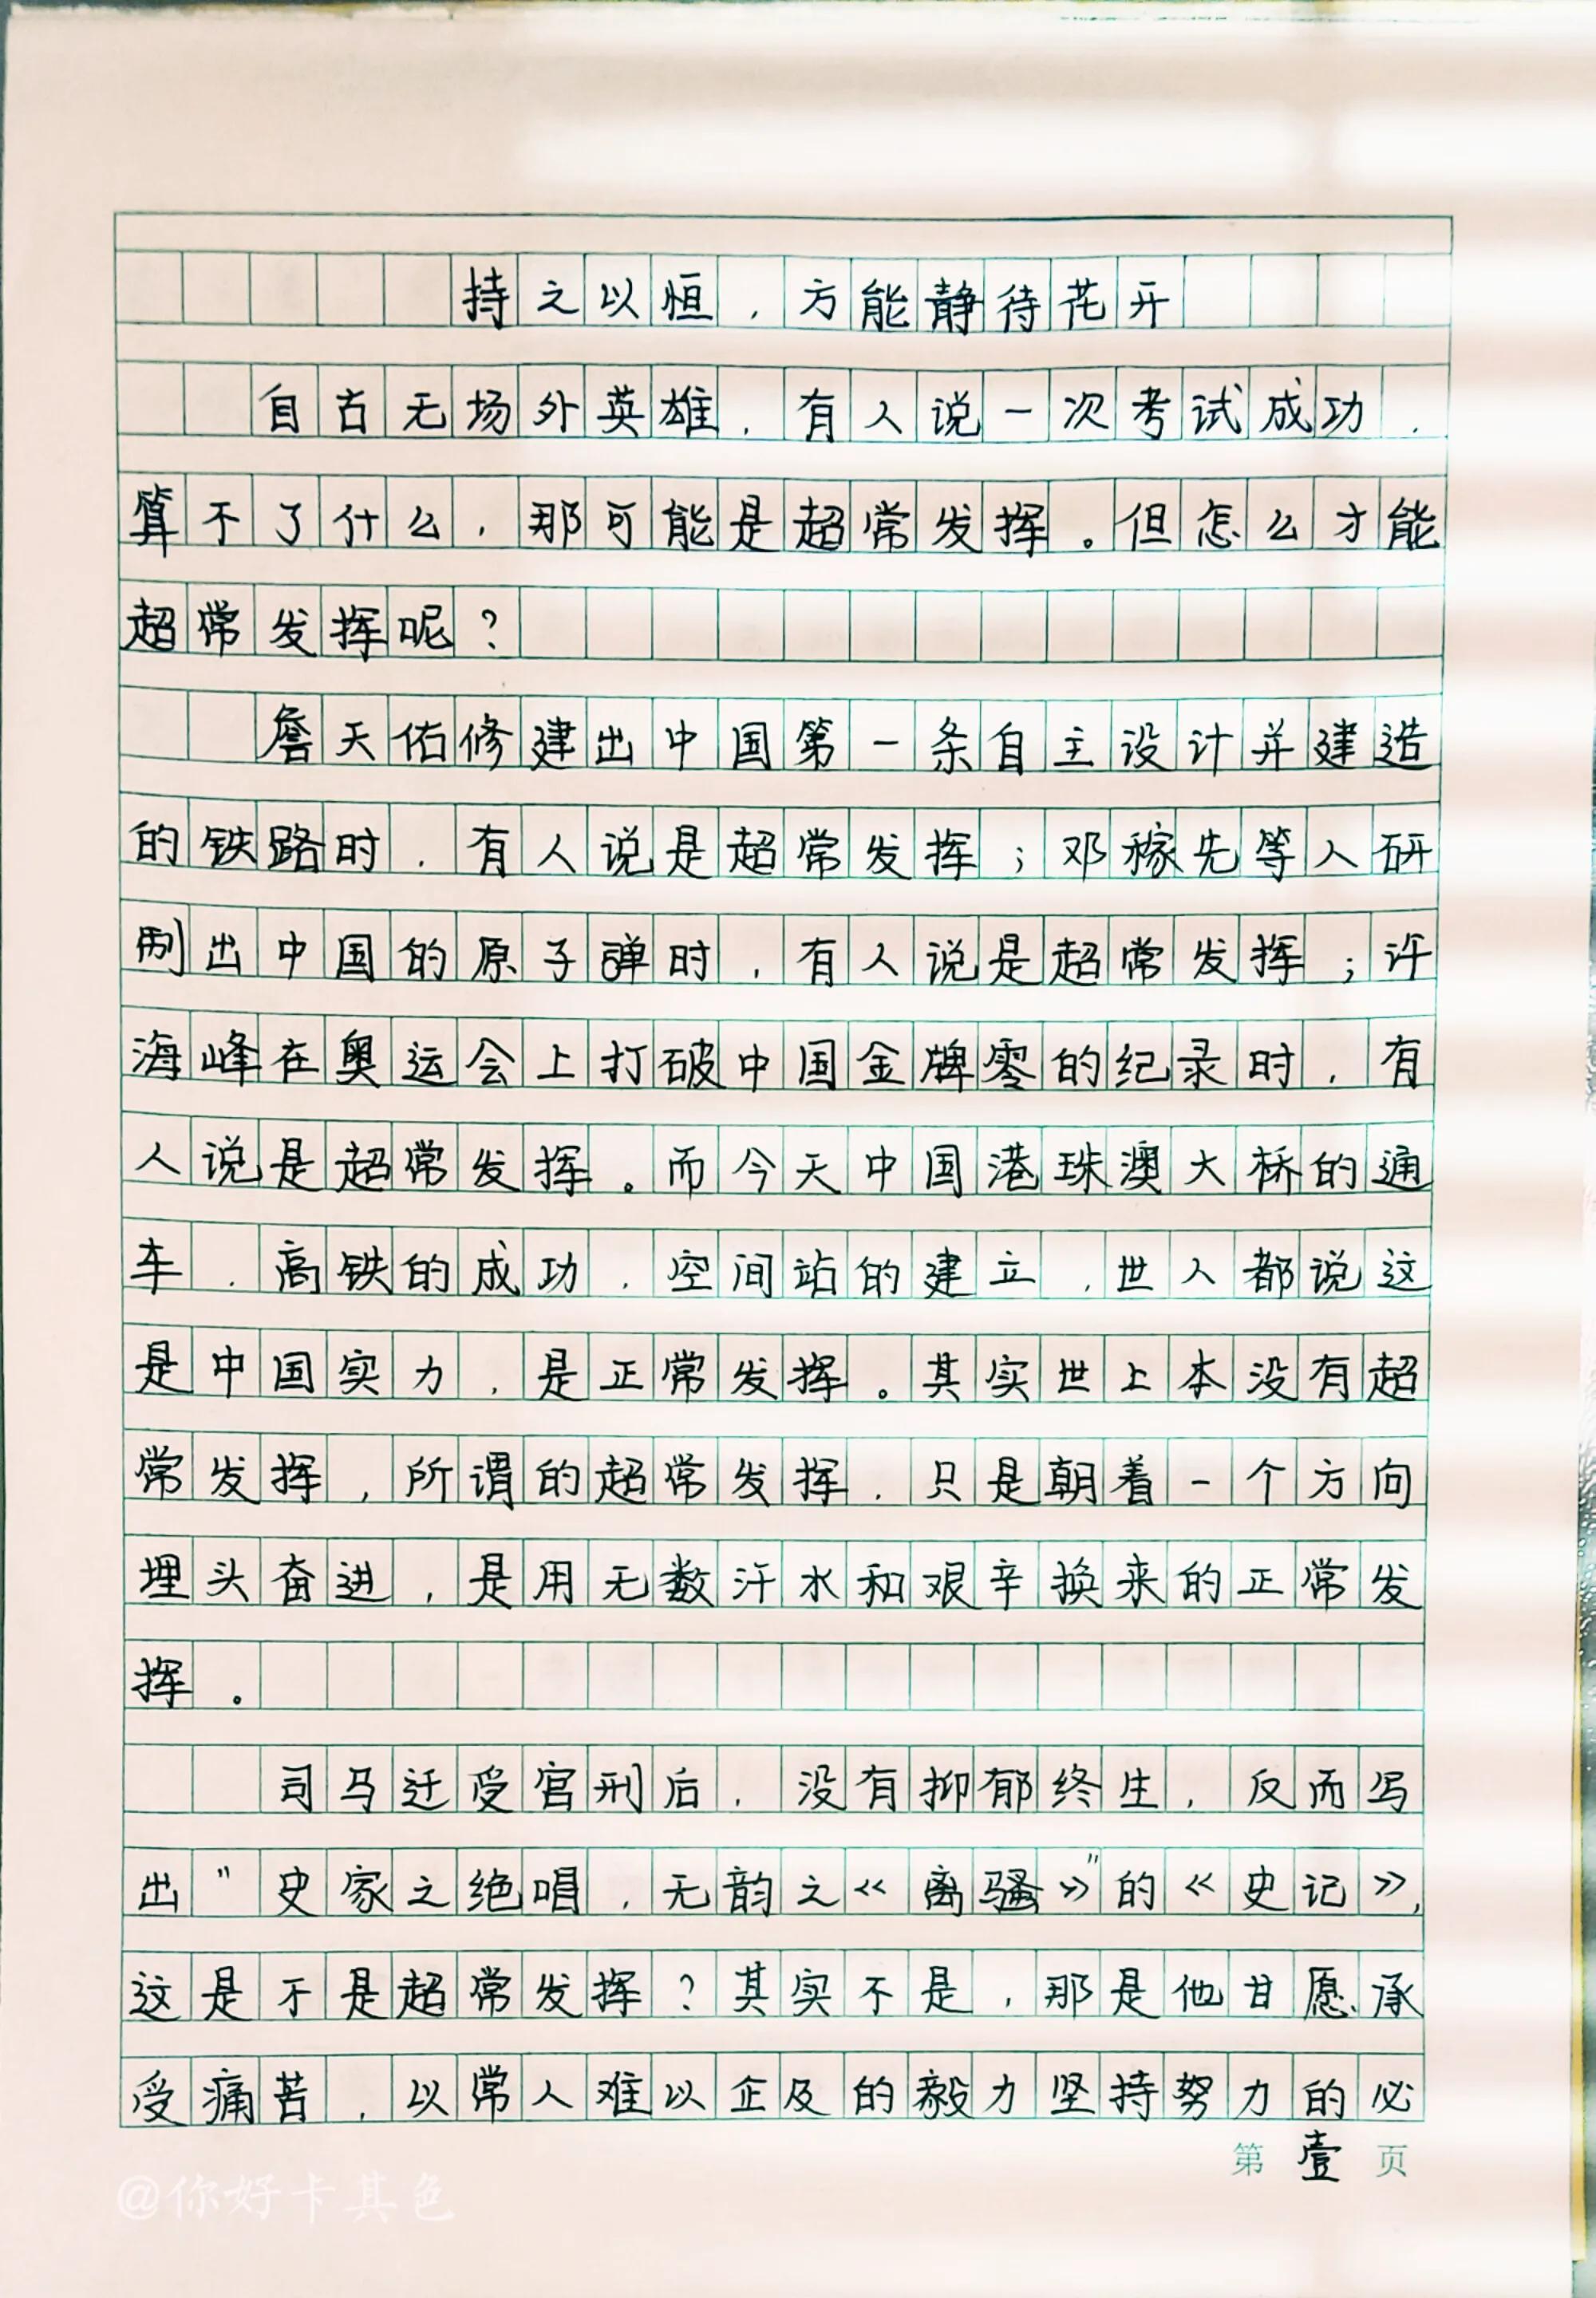 持之以恒，方能静待花开
自古无场外英雄，有人说一次考试成功，
算不了什么，那可能是超常发挥。但怎么才能
超常发挥呢？
詹天佑修建出中国第一条自主设计并建造
的铁路时，有人说是超常发挥；邓稼先等人研
制出中国的原子弹时，有人说是超常发挥；许
海峰在奥运会上打破中国金牌零的纪录时，有
人说是超常发挥。而今天中国港珠澳大桥的通
车，高铁的成功，空间站的建立，世人都说这
是中国实力，是正常发挥。其实世上本没有超
常发挥，所谓的超常发挥，只是朝着一个方向
埋头奋进，是用无数汗水和艰辛换来的正常发
挥。
司马迁受宫刑后，没有抑郁终生，反而写
出"史家之绝唱，无韵之《离骚》"的《史记》，
这是不是超常发挥？其实不是，那是他甘愿承
受痛苦，以常人难以企及的毅力坚持努力的必
第壹页
@你好卡其色